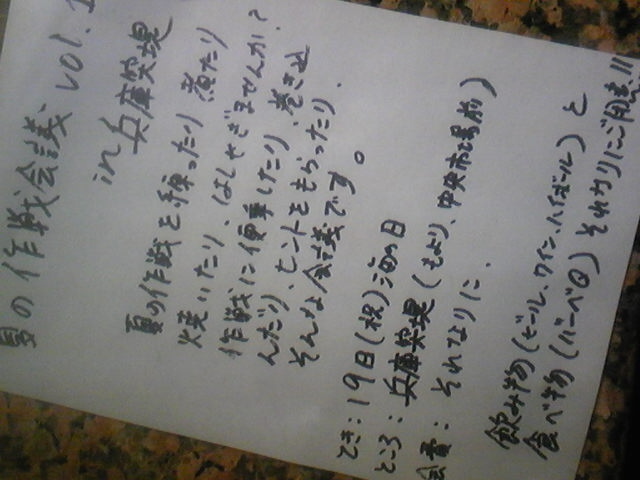 夏の作戦会議 vol.1
in 兵庫突堤
夏の作戦と練ったり 煮たり
焼いたり、はしゃぎませんか?
作戦に便乗したり、巻き込
んだり、ヒントをもらったり、
そんな会議です。
とき:19日(祝)海の日
ところ:兵庫突堤(もより、中央市場前)
会費:それなりに、
飲み物(ビール、ワイン、ハイボール)と
食べ物(バーベQ)それなりにご用意!!